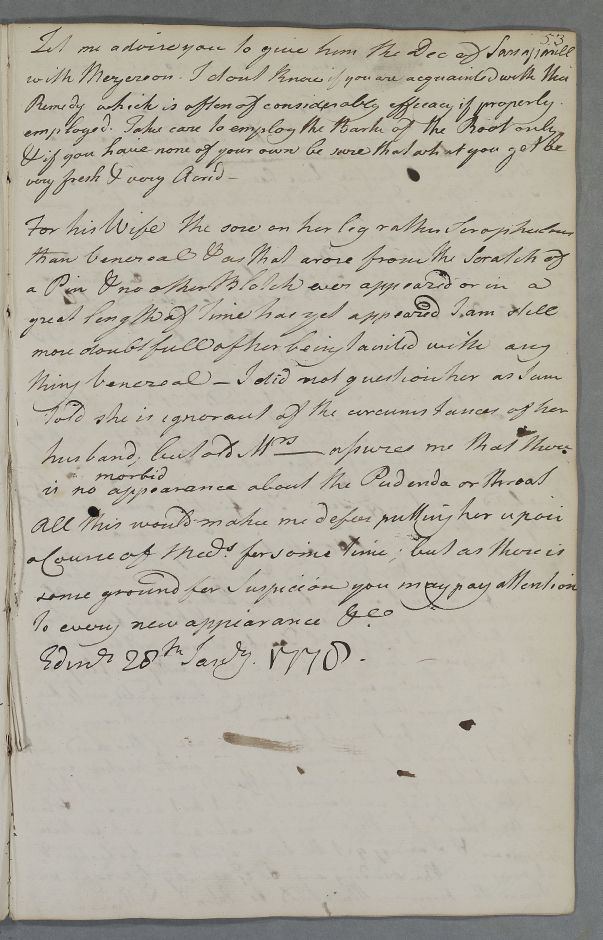 53
Let me advise you to give him the Dec of Sarsaparill
with Mezereon. I dont know if you are acquainted with this
Remedy which is often of considerable efficacy if properly
employed. Take care to employ the Bark of the Root only
& if you have none of your own be sure that what you get be
very fresh & very Acrid –
For his Wife the sore on her leg rather Scrophulous
than venereal & as that arose from the Scratch of
a Pin & no other Blotch ever appeared or in a
great length of time has yet appeared I am still
more doubtfull of her being tainted with any
thing venereal – I did not question her as I am
told she is ignorant of the circumstances of her
husband, but old Mrs — assures me that there
is no morbid appearance about the Pudenda or throat
All this would make me defer putting her upon
a Course of Meds for some time; but as there is
some ground for Suspicion you may pay attention
to every new appearance &c
Edinr 28th Jandy. 1778.